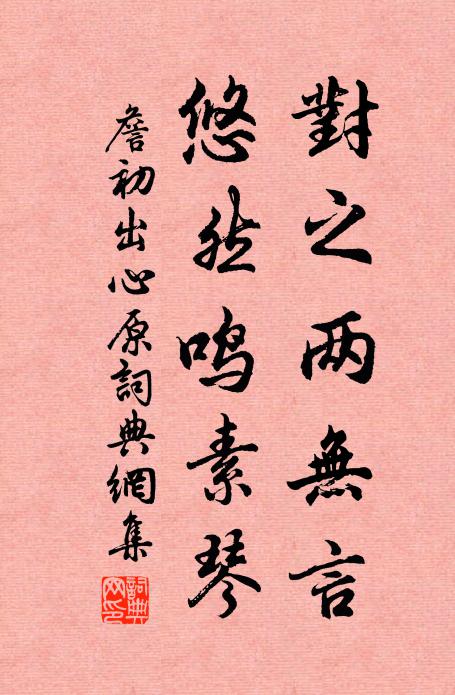 對之两無言
悠然鳴素琴
詹初出心原詞典網集
詞典网印